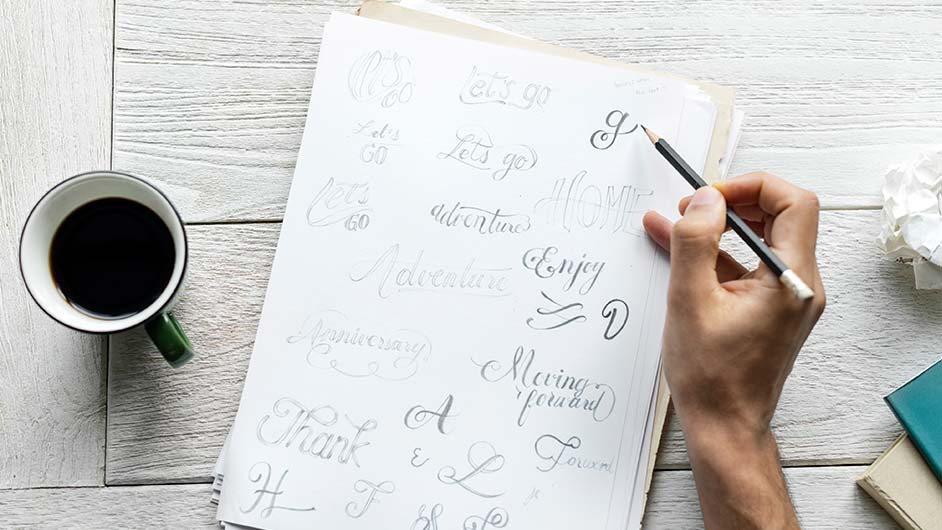 Let's
GO
Let's go
g
Let's
GO
Let's go
Let's
GO
adventure
HOME
Adventure
Enjoy
D
Anniversary
Moving
forward
Thank
A
E
L
Forward
H
F
&